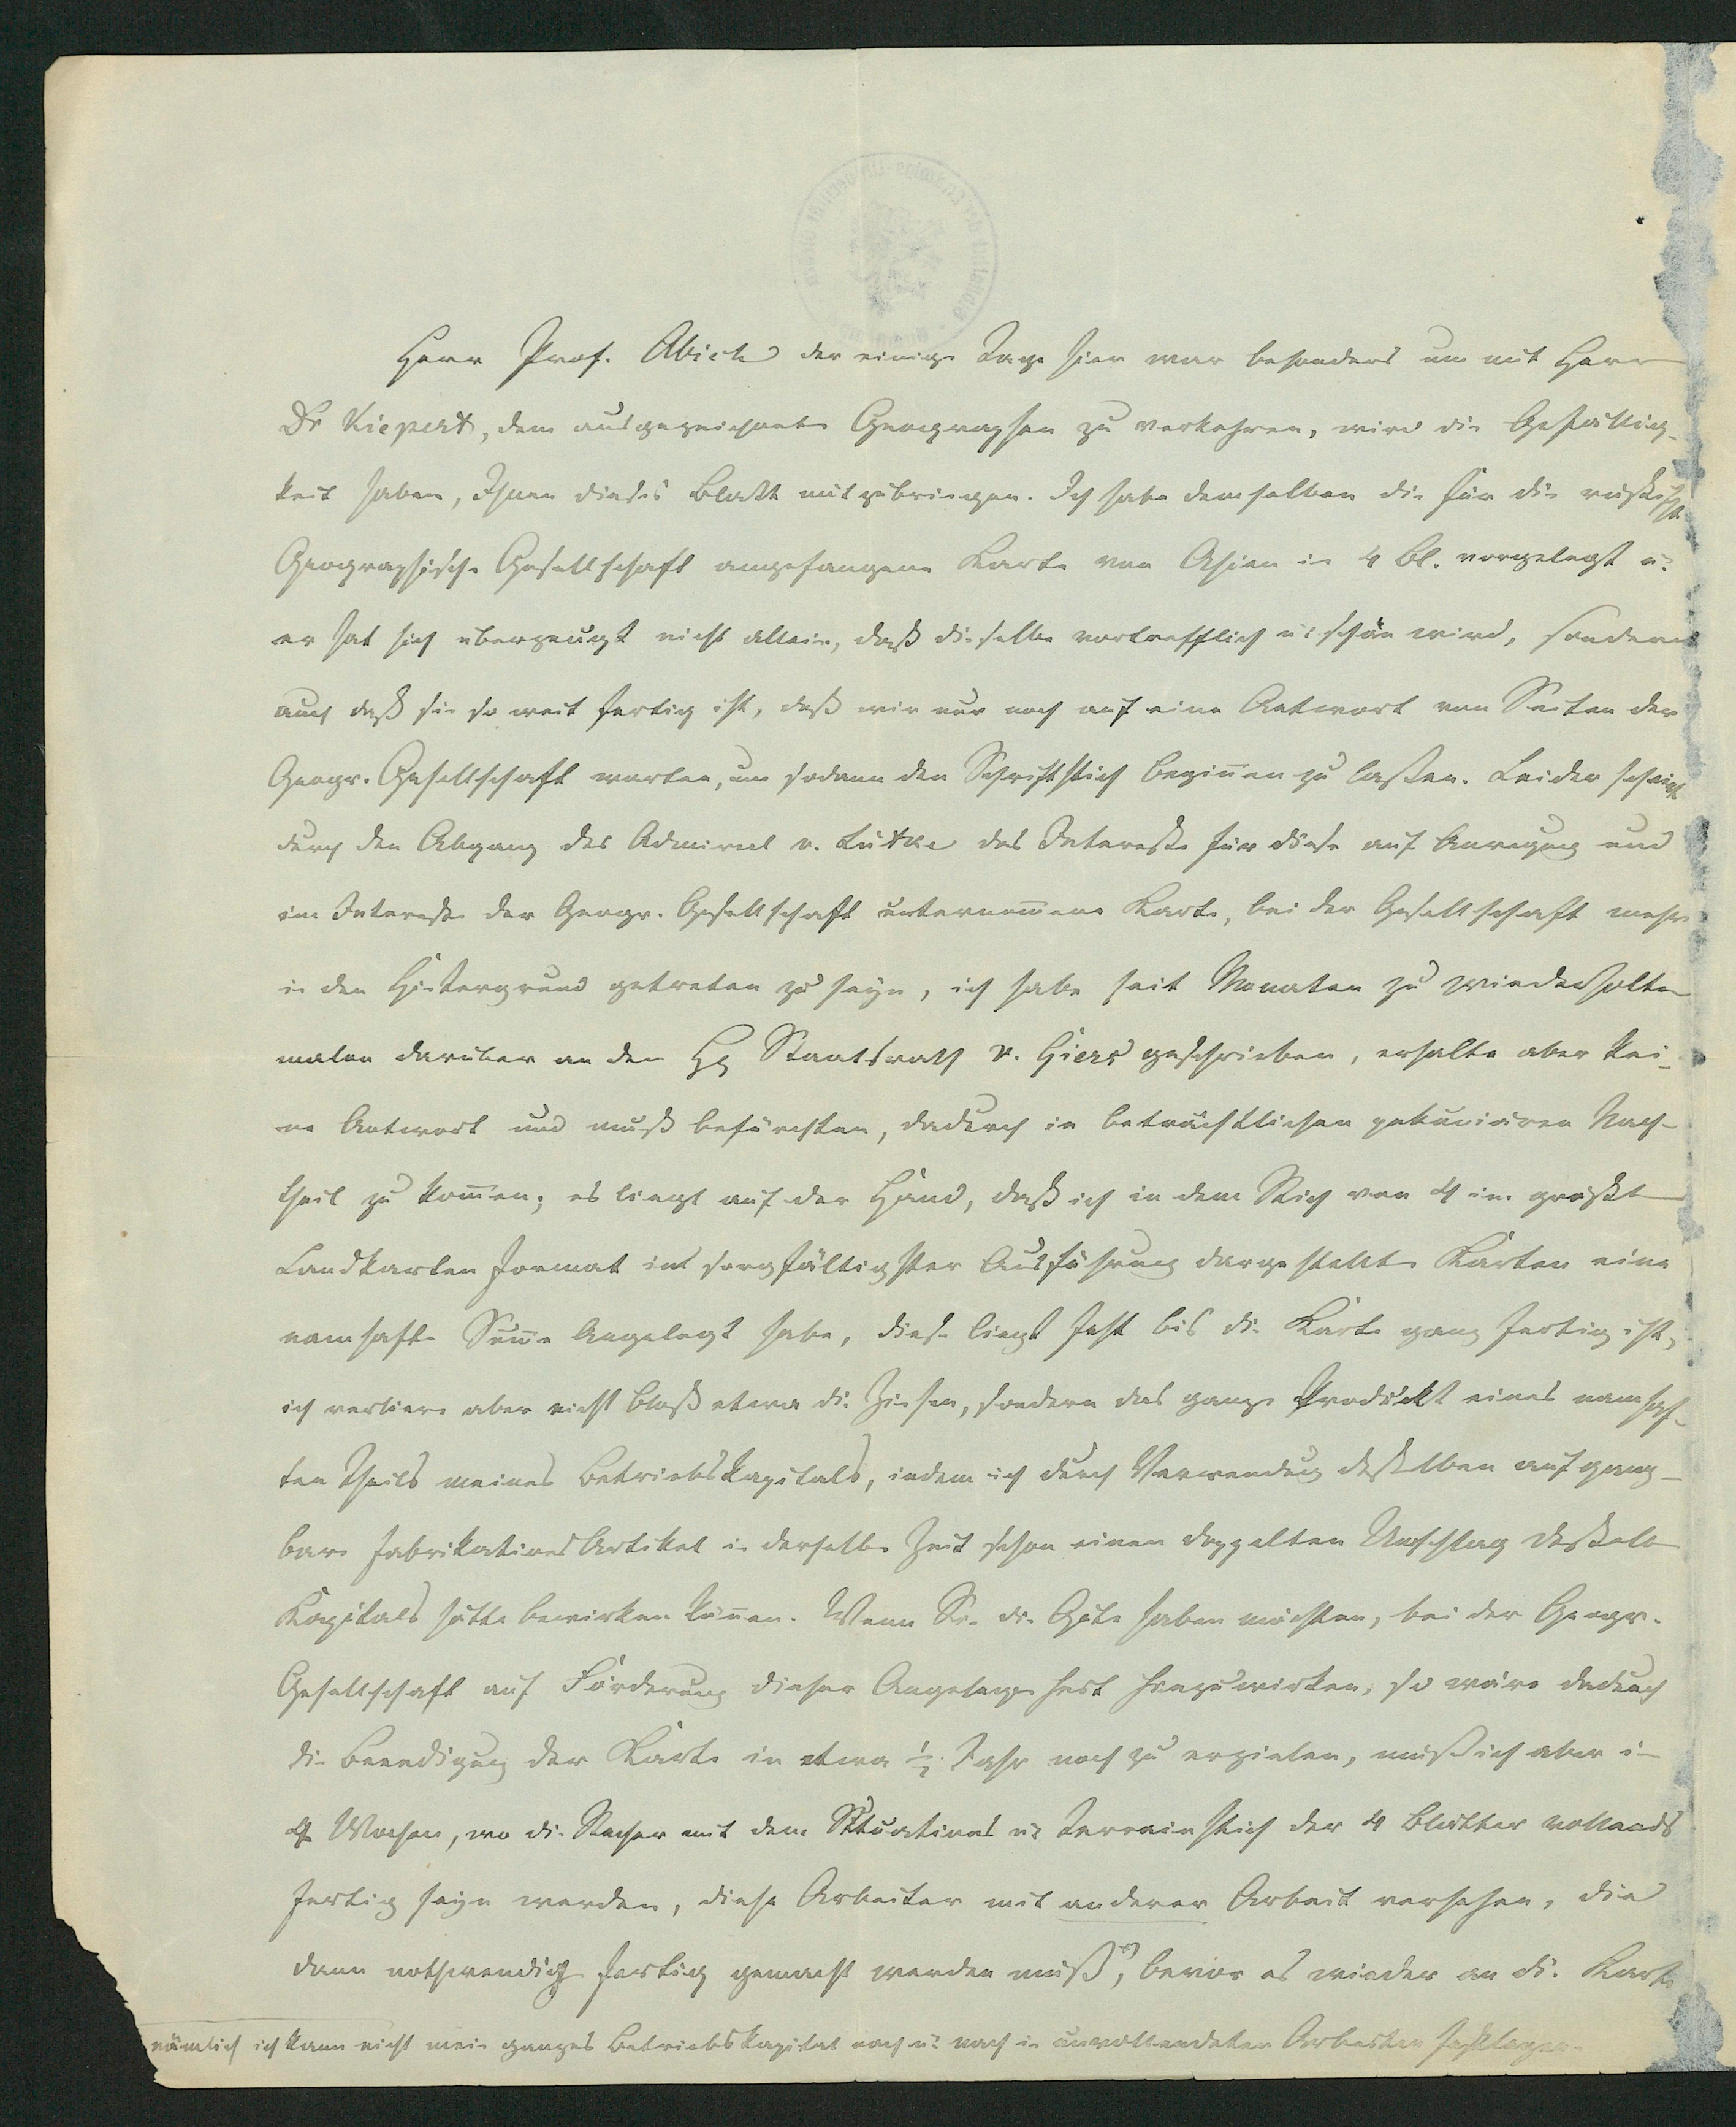 Herr Prof. Abich der einige Tage hier war besonders um mit Herr
Dr Kiepert, dem ausgezeichneten Geographen zu verkehren, wird die Gefällig-
keit haben, Ihnen dieses Blatt mitzubringen. Ich habe demselben die für die rußische
Geographische Gesellschaft angefangene Karte von Asien in 4 Bl. vorgelegt u.
er hat sich überzeugt nicht allein, daß dieselbe vortrefflich u. schön wird, sondern
auch daß sie so weit fertig ist, daß wir nur noch auf eine Antwort von Seiten der
Geogr. Gesellschaft warten, um sodann den Schriftstich begiñen zu laßen. Leider scheint
durch den Abgang des Admiral v. Lütke das Intereße für diese auf Anregung und
im Intereße der Geogr. Gesellschaft unternom̄ene Karte, bei der Gesellschaft mehr
in den Hintergrund getreten zu seyn, ich habe seit Monaten zu wiederholten
malen darüber an den Hr Staatsrath v. Giers geschrieben, erhalte aber kei-
ne Antwort und muß befürchten, dadurch in beträchtlichen pekuniären Nach-
theil zu kom̄en; es liegt auf der Hand, daß ich in dem Stich von 4 im größten
Landkarten Format in sorgfältigster Ausführung dargestellten Karten eine
namhafte Sum̄e angelegt habe, diese liegt fest bis die Karte ganz fertig ist,
ich verliere aber nicht bloß etwa die Zinsen, sondern das ganze Produckt eines namhaf-
ten Theils meines Betriebskapitals, indem ich durch Verwendung deßelben auf gang-
bare Fabrikations Artikel in derselben Zeit schon einen doppelten Umschlag deßelben
Kapitals hätte bewirken köñen. Wenn Sie die Güte haben möchten, bei der Geogr.
Gesellschaft auf Förderung dieser Angelegenheit hinzuwirken, so wäre dadurch
die Beendigung der Karte in etwa ½ Jahr noch zu erzielen, muß ich aber in
4 Wochen, wo die Stecher mit dem Situations u. Terrainstich der 4 Blätter vollends
fertig seyn werden, diese Arbeiter mit anderer Arbeit versehen, die
dann nothwendig fertig gemacht werden muß *), bevor es wieder an die Karte
nämlich ich kann nicht mein ganzes Betriebskapital nach u. nach in unvollendeten Arbeiten festlegen.